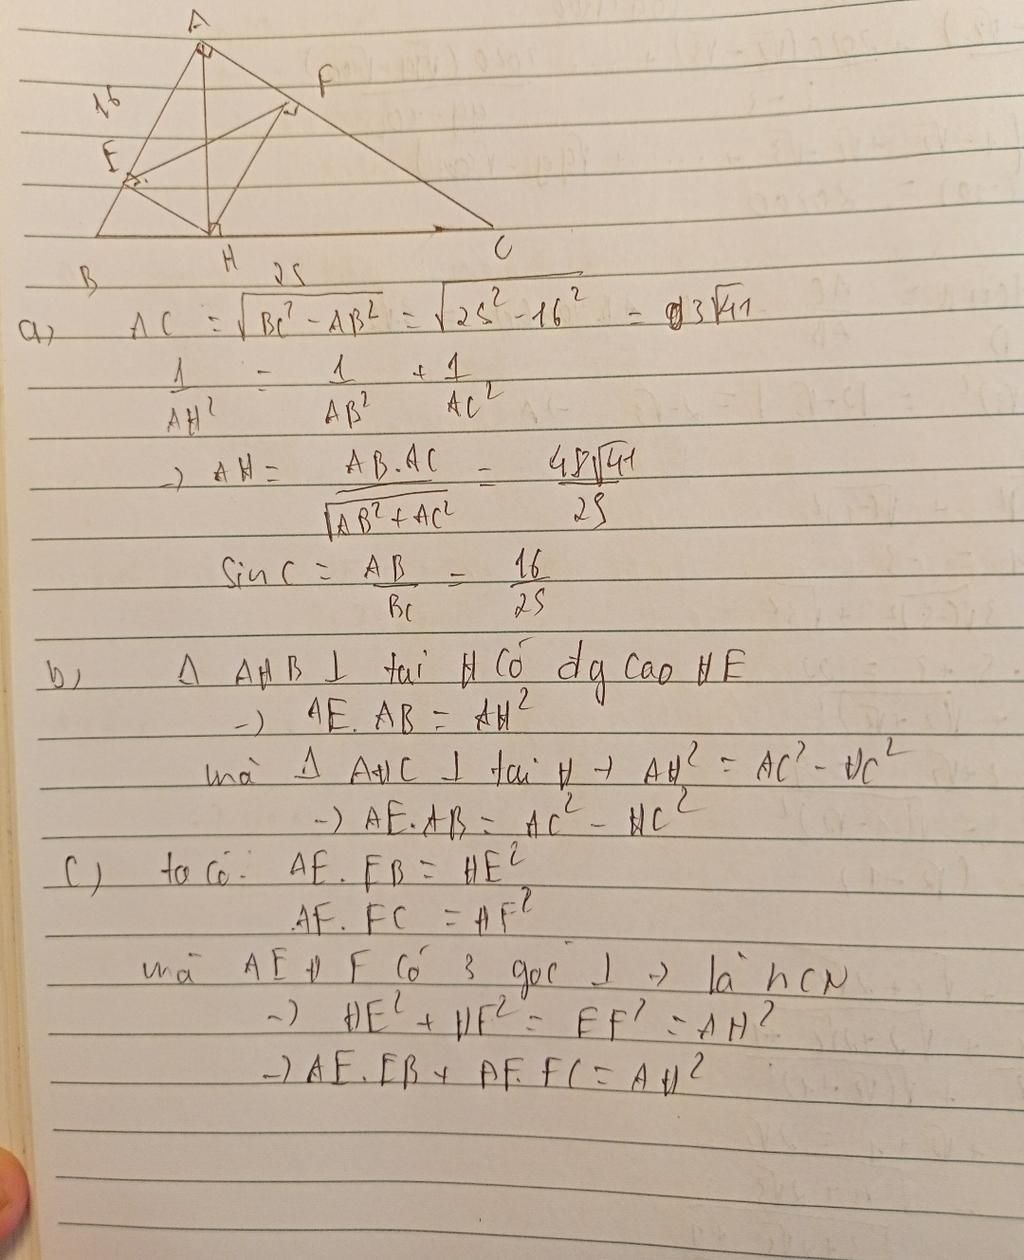 A
F
16
E
B
H
C
25
a) AC = √(BC² - AB²) = √(25² - 16²) = 3√41
1/AH² = 1/AB² + 1/AC²
-> AH = AB.AC/√(AB² + AC²) = 48√41/25
Sin C = AB/BC = 16/25
b) Δ AHB ⊥ tại H Có đg Cao HE
-> AE. AB = AH²
mà Δ AHC ⊥ tại H -> AH² = AC² - HC²
-> AE.AB = AC² - HC²
C) ta có: AE. EB = HE²
AF. FC = HF²
mà AEHF Có 3 góc ⊥ -> là hCN
-> HE² + HF² = EF² = AH²
-> AE.EB + AF.FC = AH²